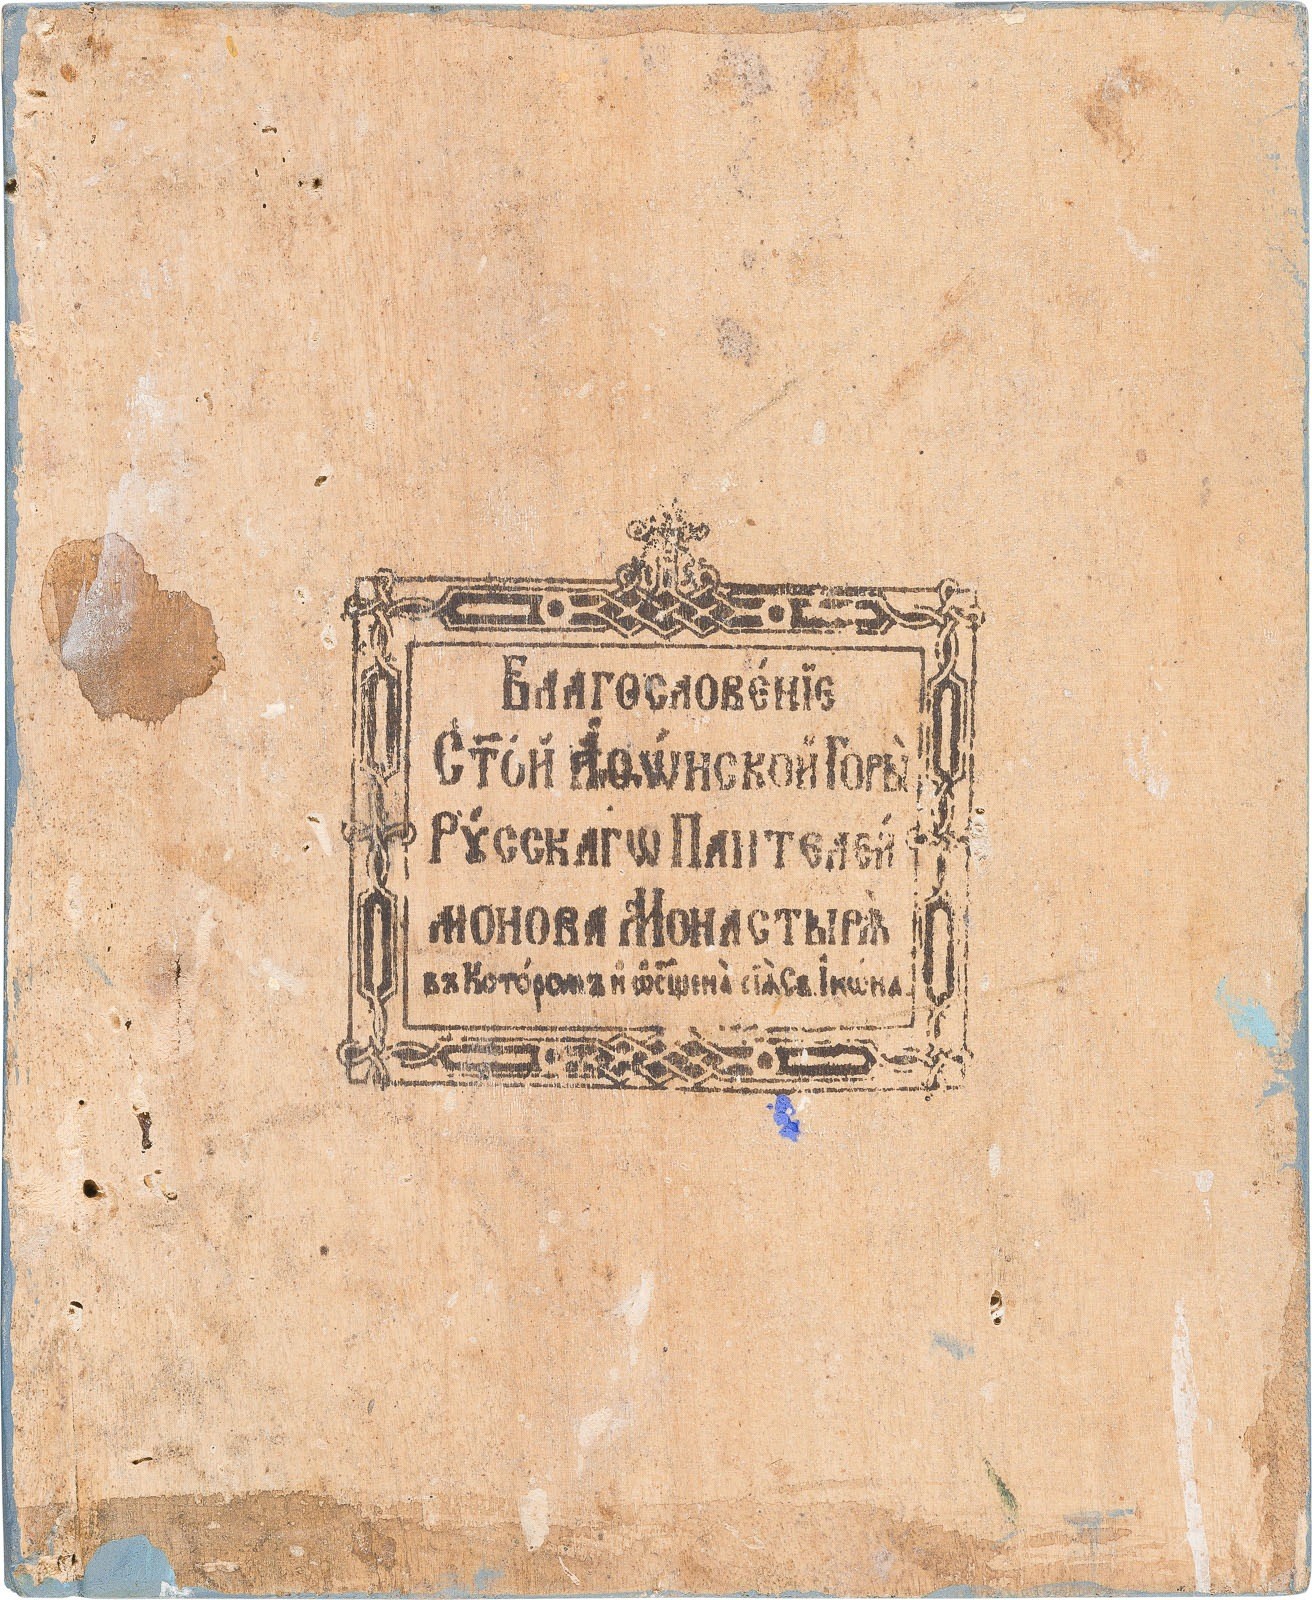 Благословéнїе
Ст҃óй Аѳѡ́нской Горы̀
Рꙋ́сскагѡ Пантелеи́
монова Монастырѧ̀
въ Кото́ромъ и҆ ѡ҆сщ҃ена̀ сїѧ̀ Св. І҆кѡ́на